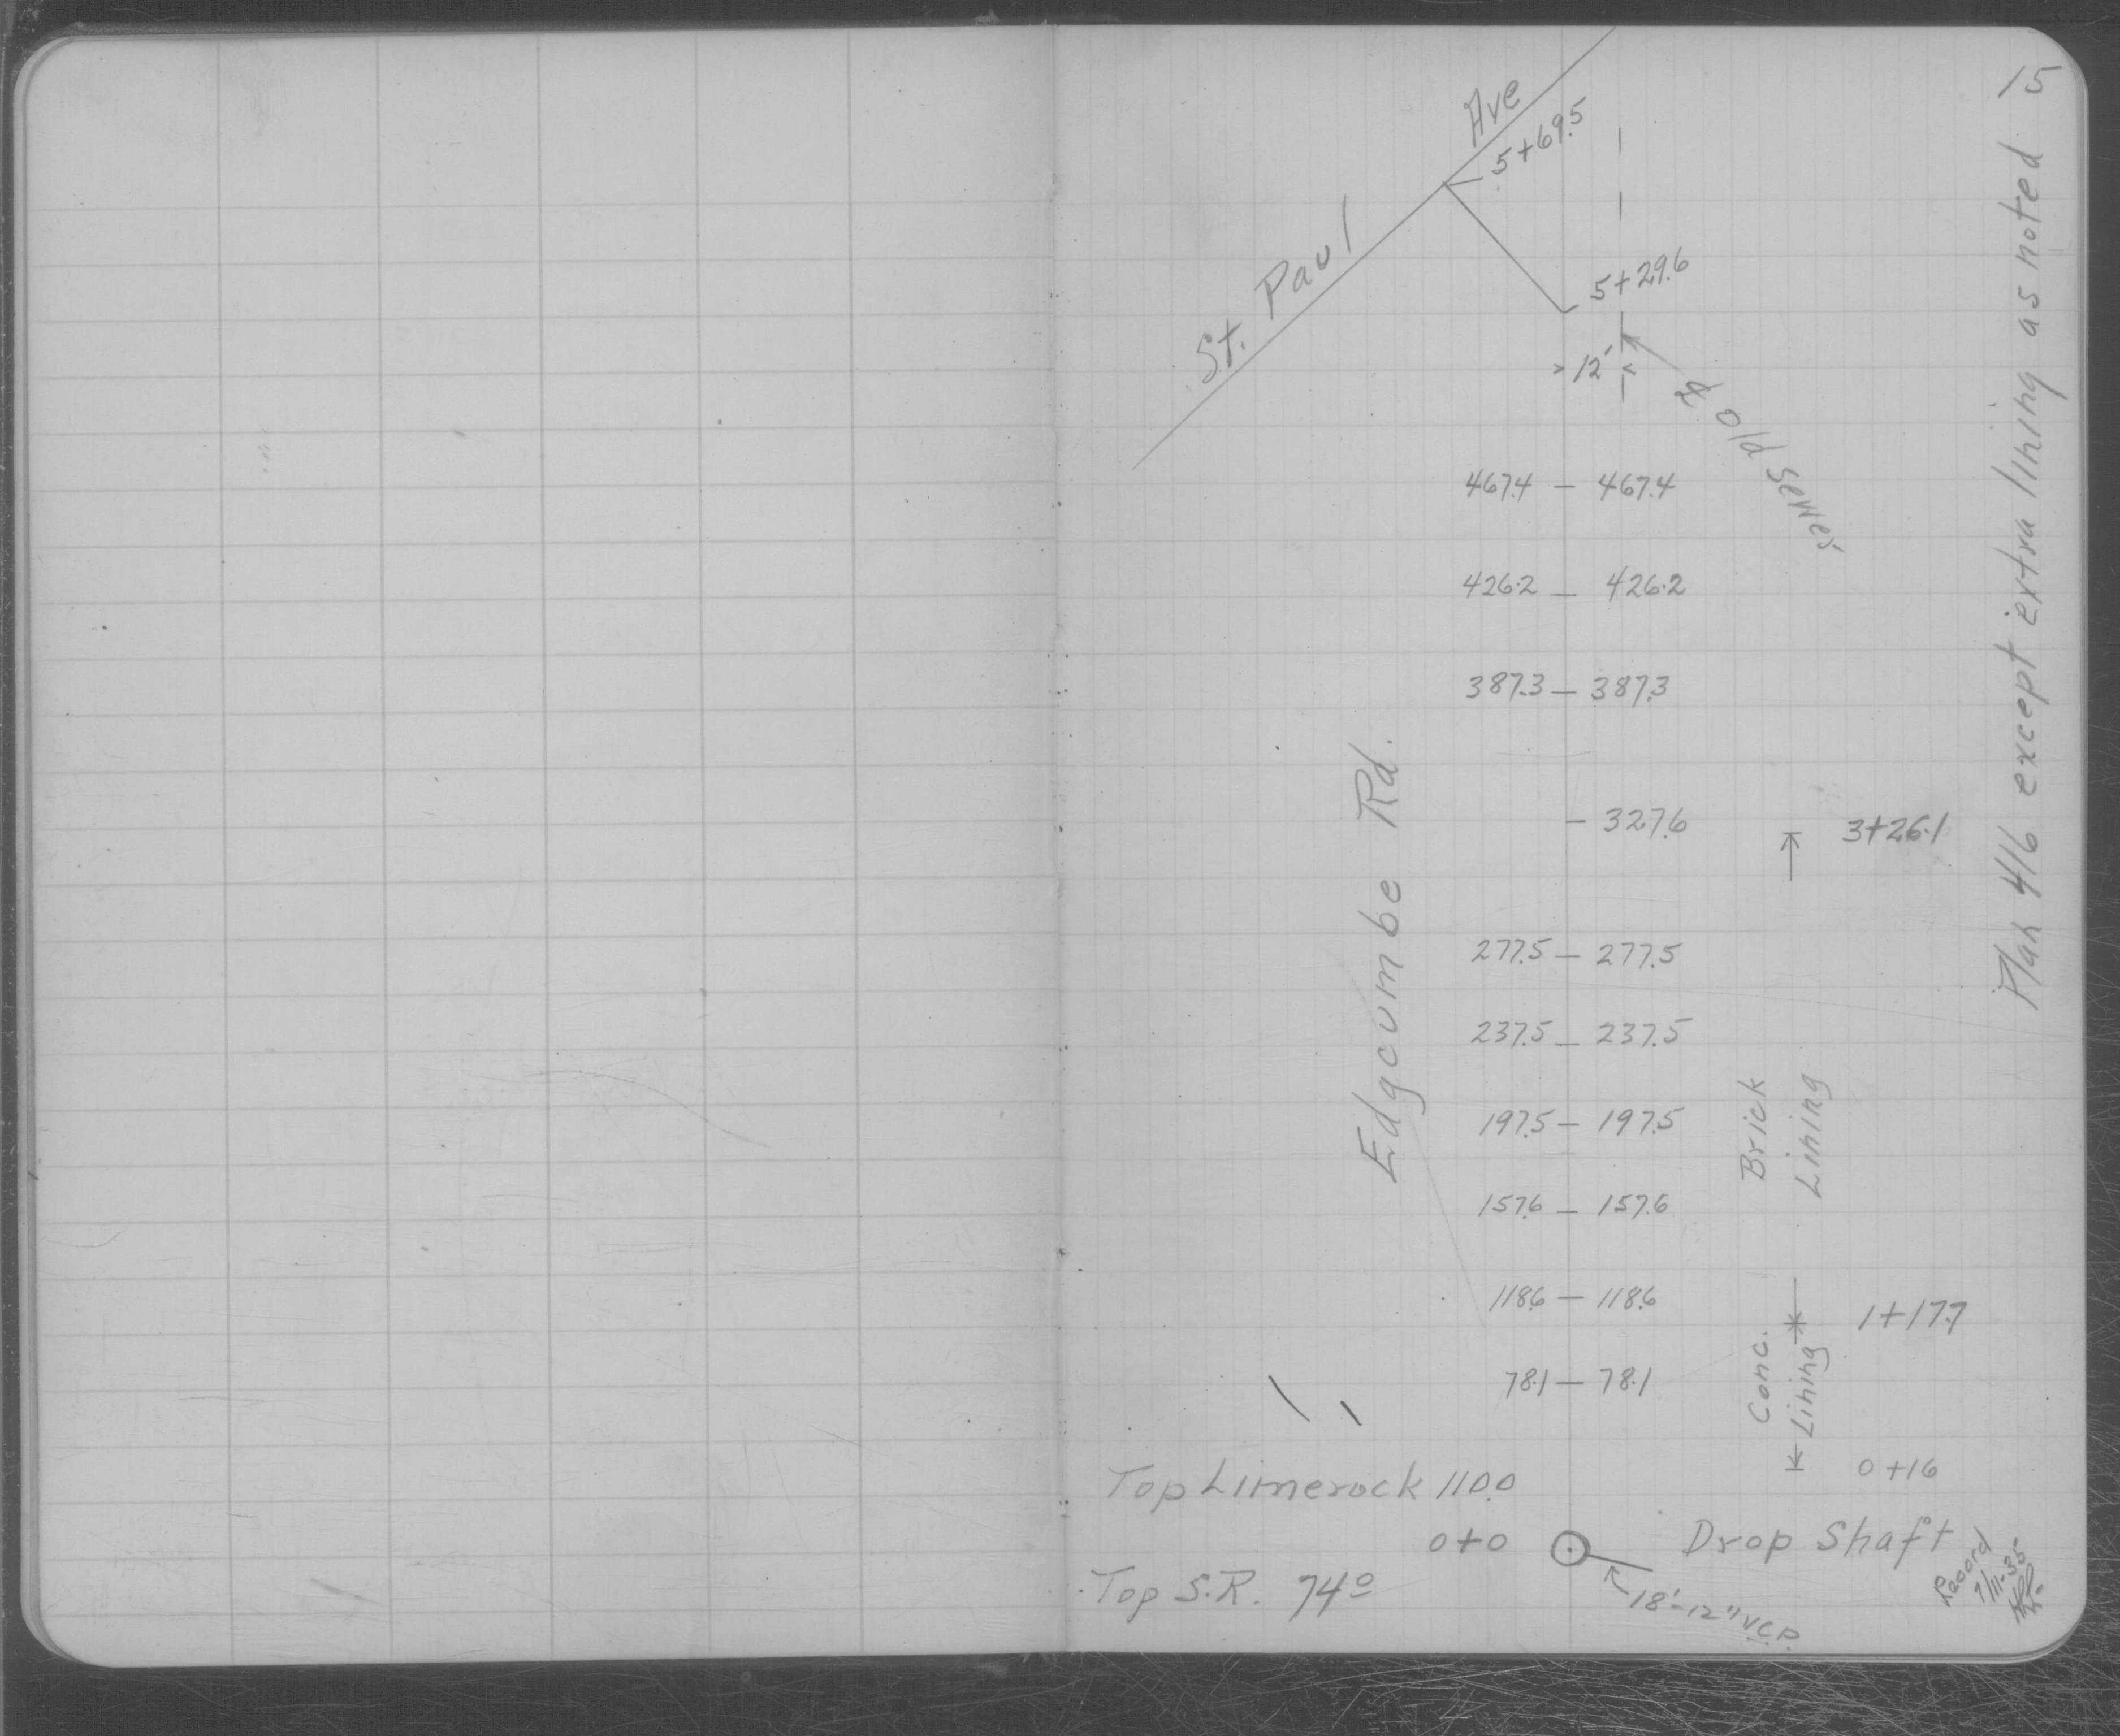 15
Plan 416 except extra lining as noted
St. Paul Ave
5+69.5
5+29.6
12'
℄ Old Sewer
467.4 — 467.4
426.2 — 426.2
387.3 — 387.3
- 327.6
3+26.1
Edgcumbe Rd.
277.5 — 277.5
237.5 — 237.5
197.5 — 197.5
Brick
Lining
157.6 — 157.6
118.6 — 118.6
1+17.7
Conc.
Lining
78.1 — 78.1
0+16
Top Limerock 110.0
0+0
Drop Shaft
Top S.R. 74º
18'-12" V.C.P.
Record
7/11-35